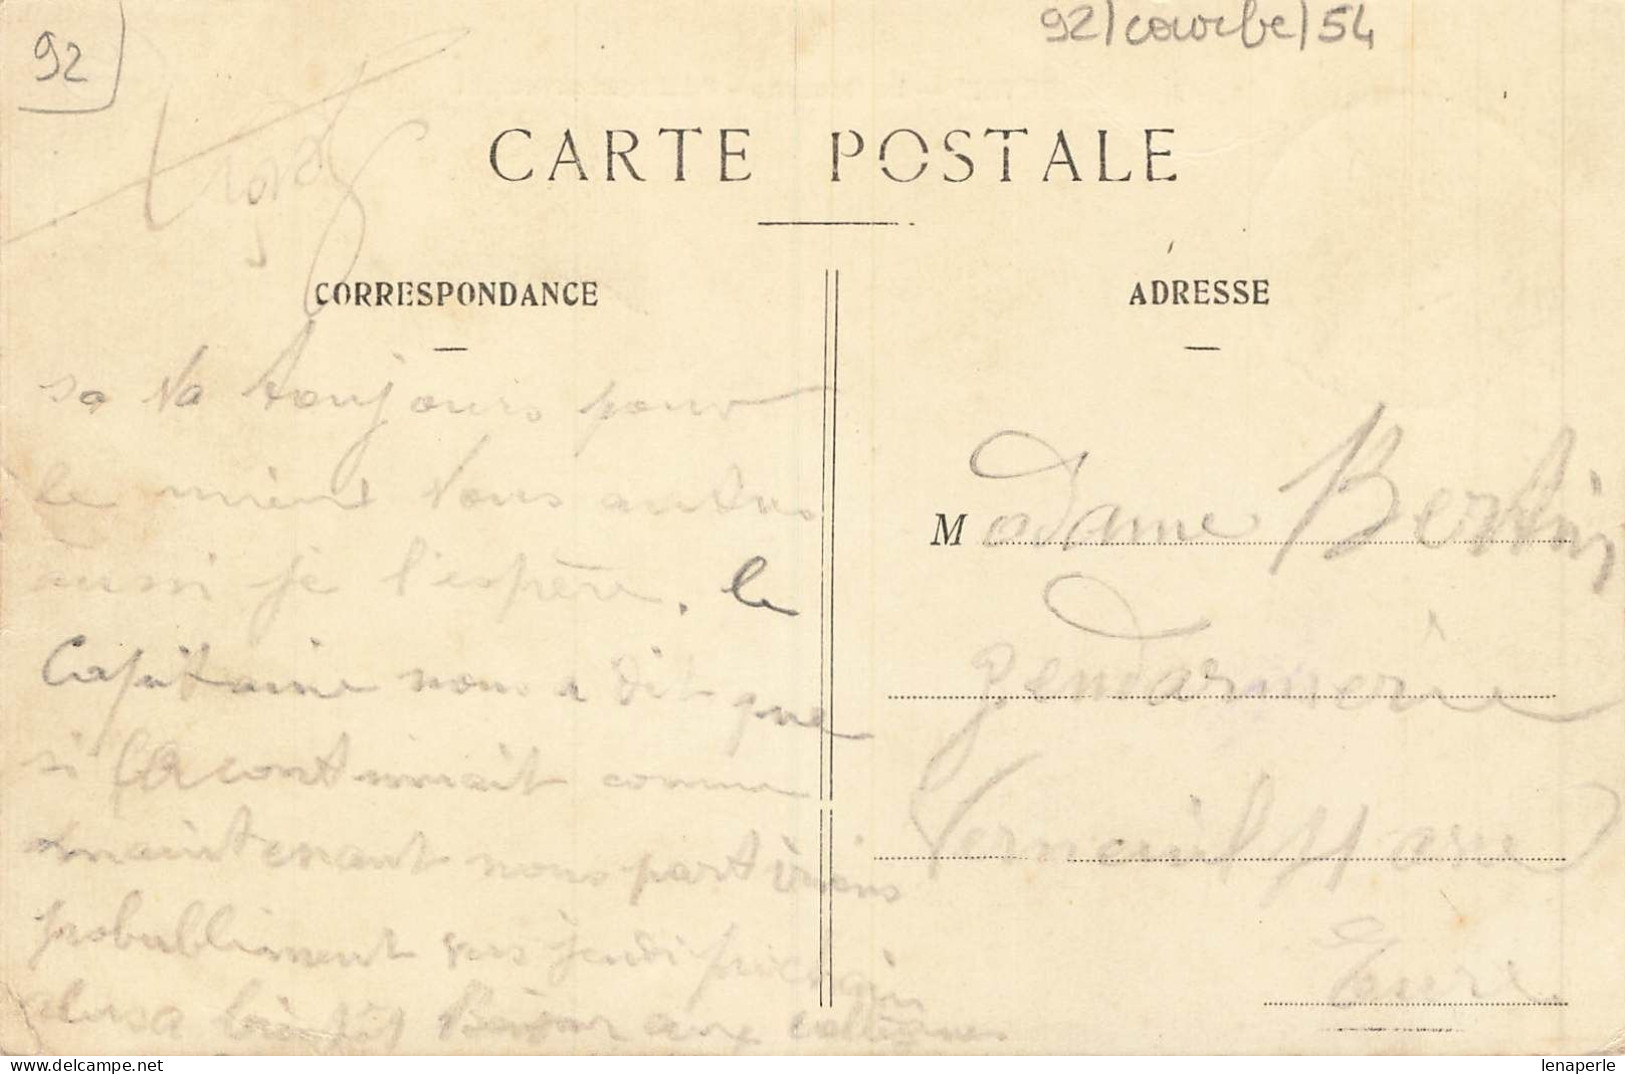 92
92/courbe/54
CARTE POSTALE
CORRESPONDANCE
ADRESSE
sa va toujours pour
le mieux Vous autres
aussi je l'espère. le
Capitaine nous a dit que
si ça continuait comme
maintenant nous partirions
probablement vers jeudi prochain
alors a bientôt Bonjour aux collègues
Madame Bertin
gendarmerie
Verneuil
Eure
lenaperle